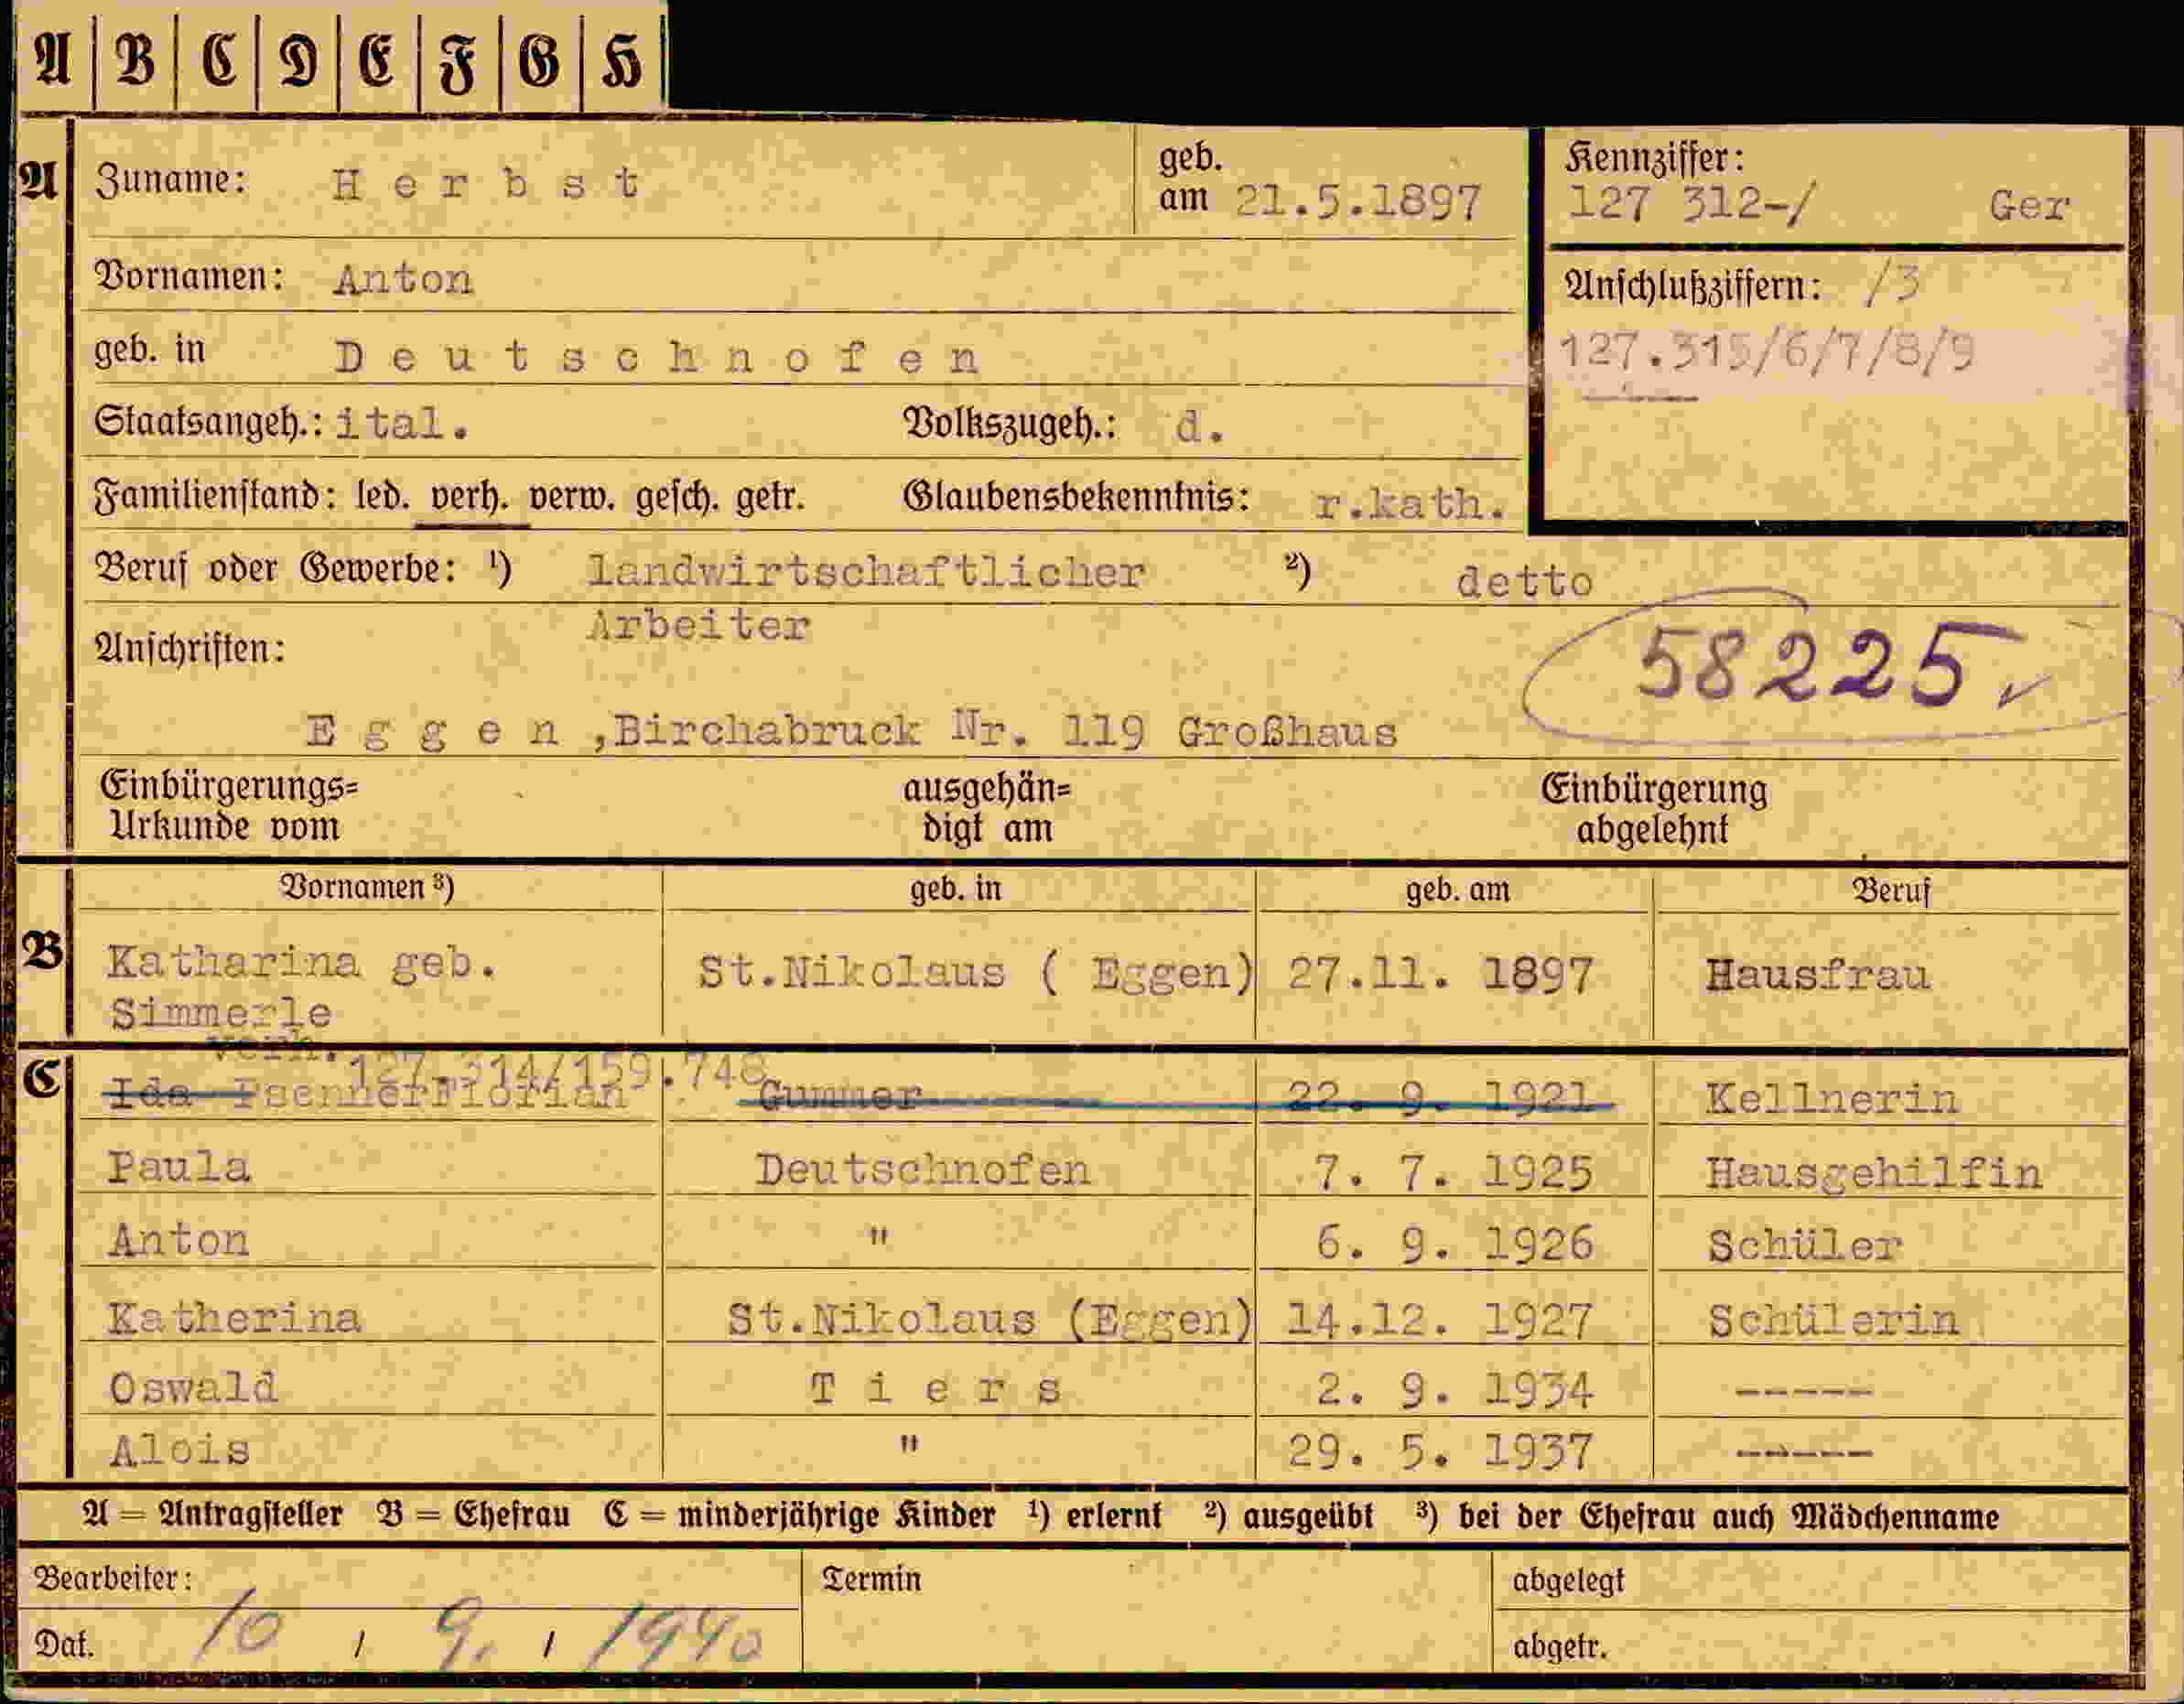 A B C D E F G H
A Zuname: Herbst geb. am 21.5.1897
Kennziffer:
127 312-/ Ger
Vornamen: Anton
Anschlußziffern: /3
127.315/6/7/8/9
geb. in Deutschnofen
Staatsangeh.: ital. Volkszugeh.: d.
Familienstand: led. verh. verw. gesch. getr. Glaubensbekenntnis: r.kath.
Beruf oder Gewerbe: ¹) landwirtschaftlicher ²) detto
Arbeiter
Anschriften:
58225
Eggen ,Birchabruck Nr. 119 Großhaus
Einbürgerungs= ausgehän= Einbürgerung
Urkunde vom digt am abgelehnt
Vornamen ³) geb. in geb. am Beruf
B Katharina geb. St.Nikolaus ( Eggen) 27.11. 1897 Hausfrau
Simmerle
verh. 127.314/159.748
C Ida Psenner Florian Gummer 22. 9. 1921 Kellnerin
Paula Deutschnofen 7. 7. 1925 Hausgehilfin
Anton " 6. 9. 1926 Schüler
Katherina St.Nikolaus (Eggen) 14.12. 1927 Schülerin
Oswald Tiers 2. 9. 1934 -----
Alois " 29. 5. 1937 -----
A = Antragsteller B = Ehefrau C = minderjährige Kinder ¹) erlernt ²) ausgeübt ³) bei der Ehefrau auch Mädchenname
Bearbeiter: Termin abgelegt
Dat. 10 / 9. / 1940 abgetr.